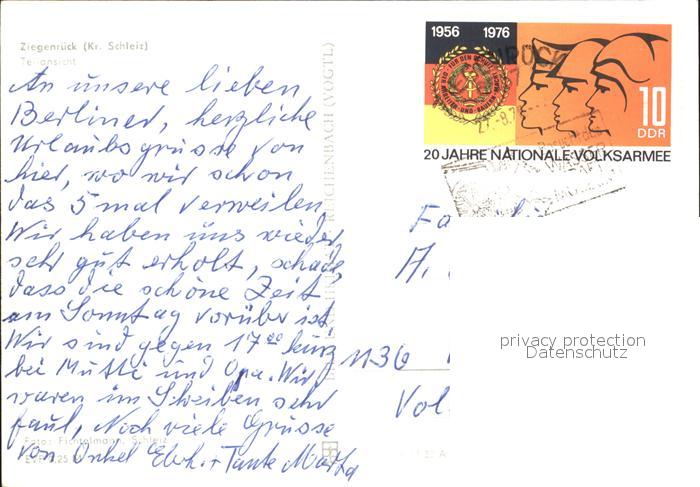 Ziegenrück (Kr. Schleiz)
Teilansicht
An unsere lieben
Berliner, herzliche
Urlaubsgrüsse von
hier, wo wir schon
das 5 mal verweilen,
Wir haben uns wieder
sehr gut erholt, schade,
dass die schöne Zeit
am Sonntag vorüber ist.
Wir sind gegen 17 00 kurz
bei Mutti und Opa. Wir
waren im Schreiben sehr
faul, Noch viele Grüsse
von Onkel Eberh. + Tante Marta
Foto: Fichtelmann, Schleiz
REICHENBACH (VOGTL)
1956 1976
10
DDR
20 JAHRE NATIONALE VOLKSARMEE
27.-8.7
Fa
A.
1136
Vol
privacy protection
Datenschutz